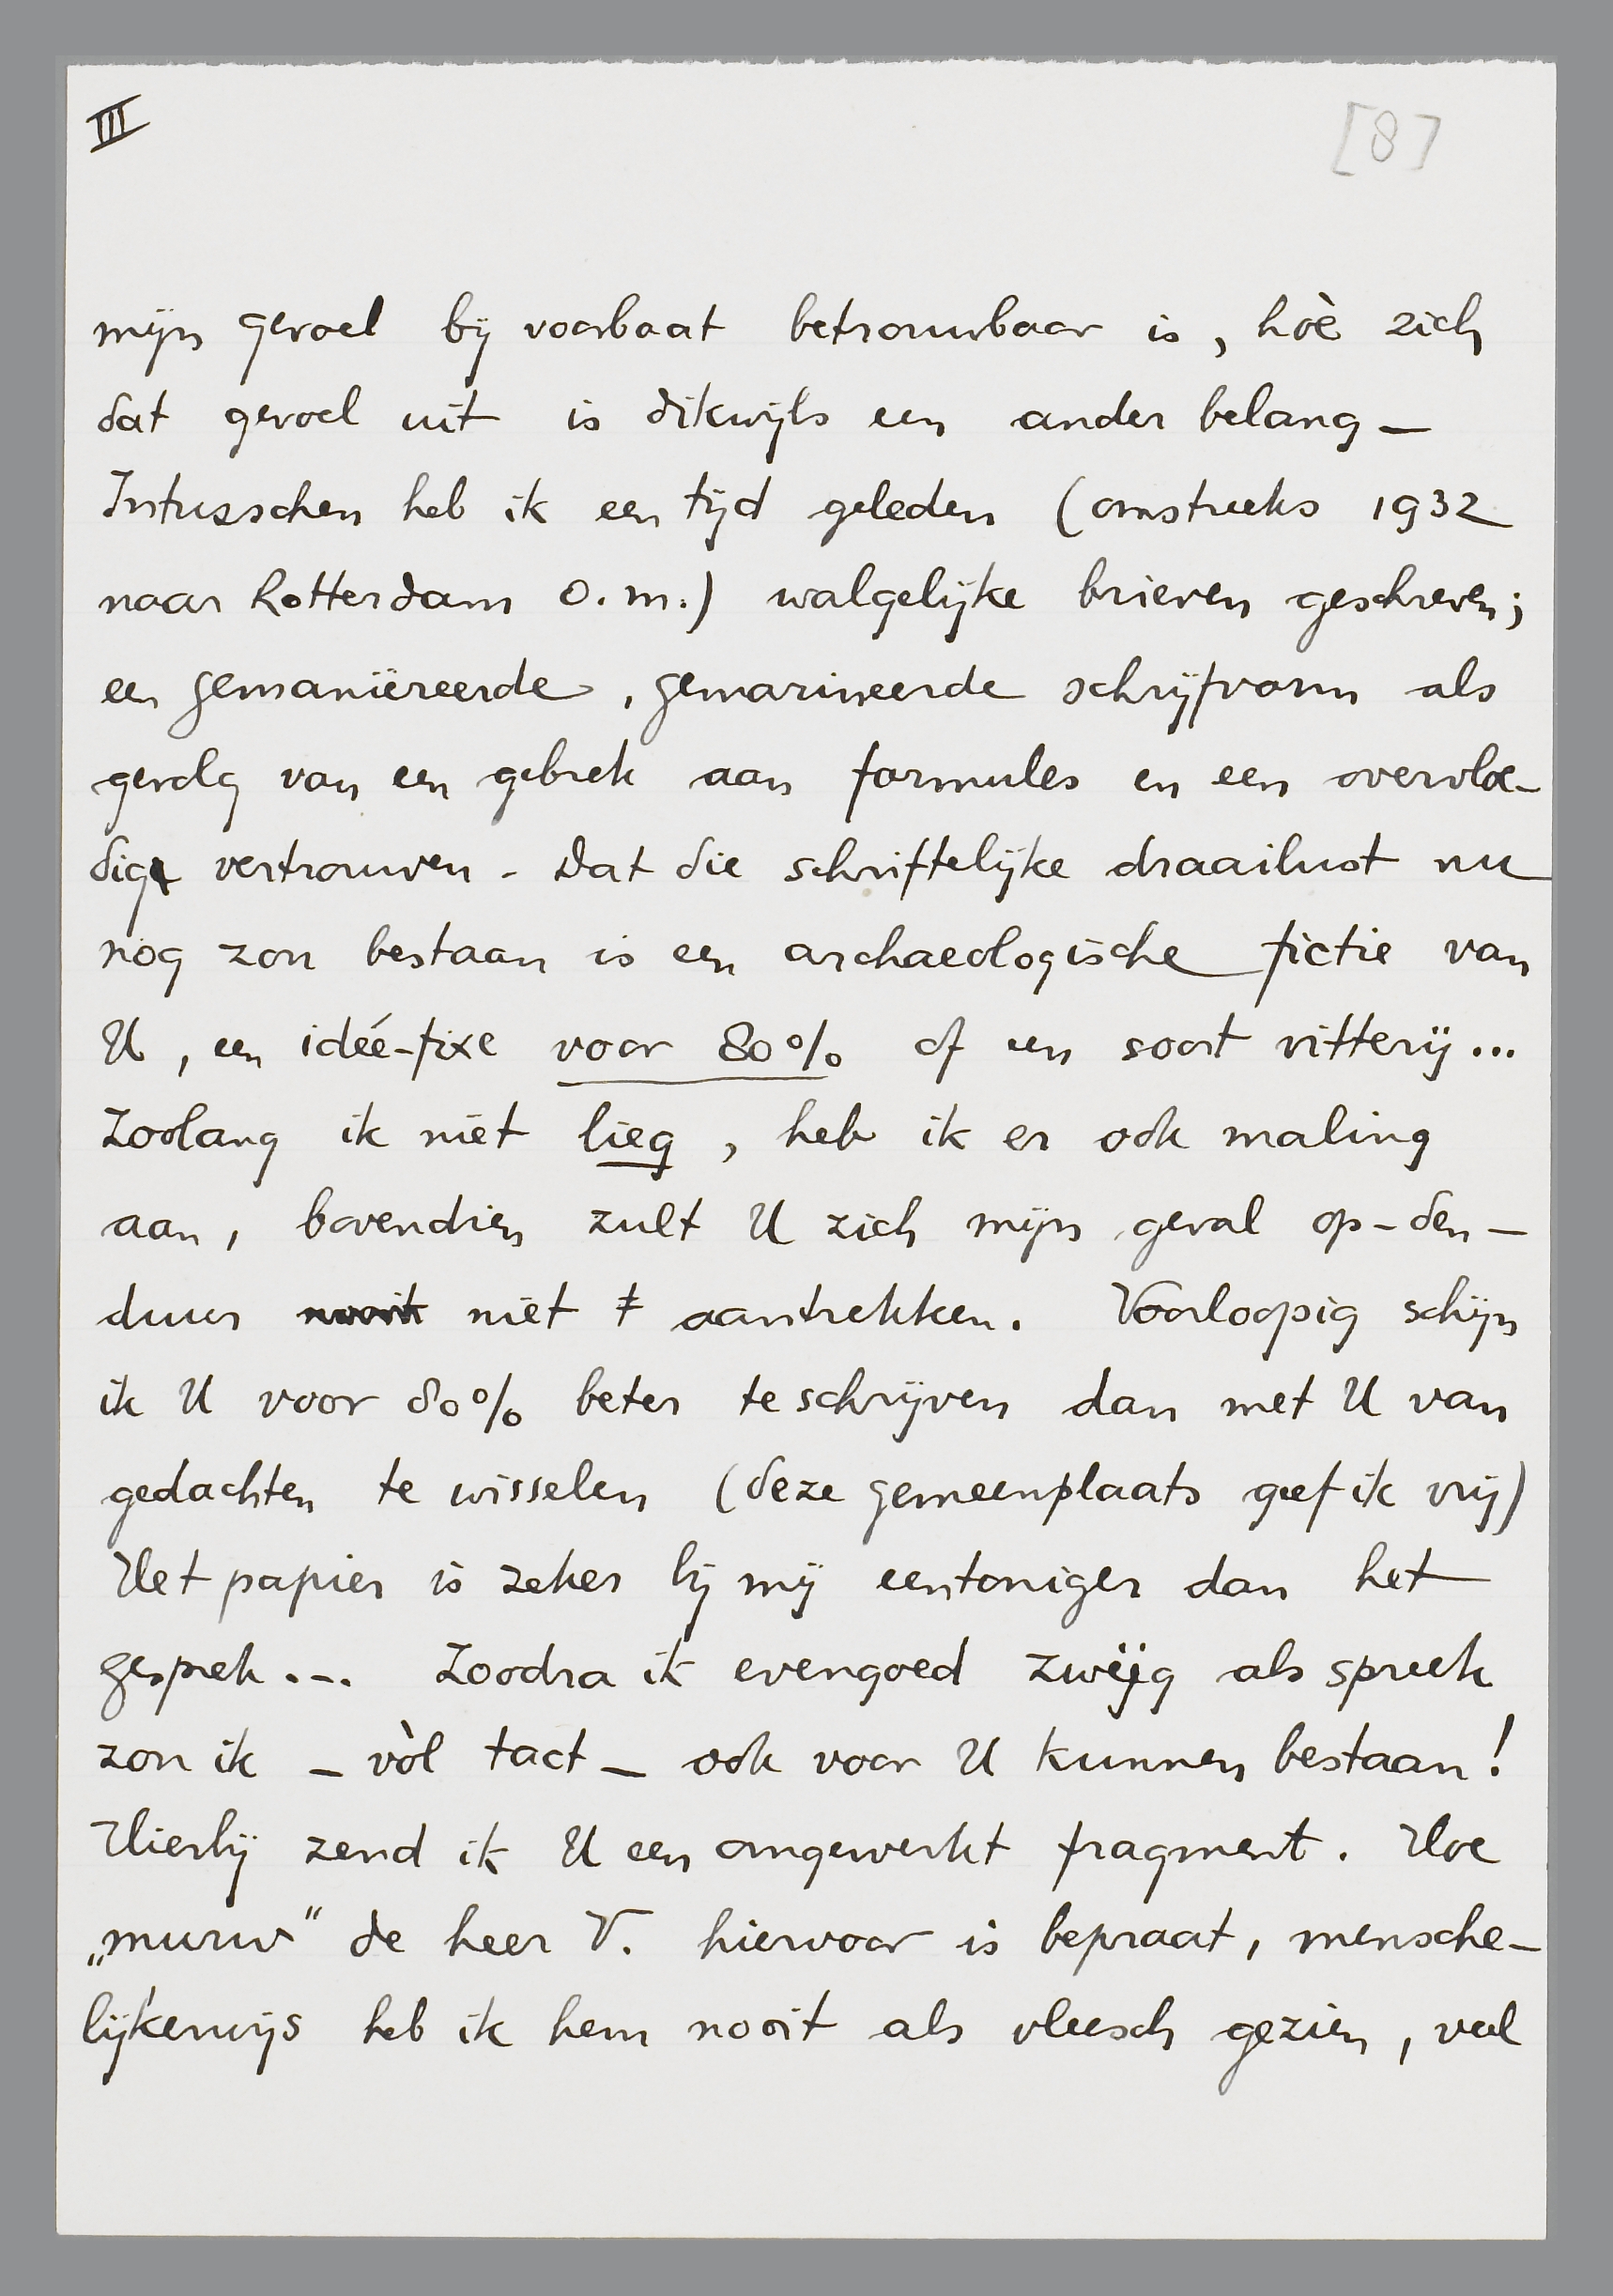 III
[8]
mijn gevoel bij voorbaat betrouwbaar is, hòe zich
dat gevoel uit is dikwijls een ander belang —
Intusschen heb ik een tijd geleden (omstreeks 1932
naar Rotterdam o.m.) walgelijke brieven geschreven;
een gemaniëreerde, gemarineerde schrijfvorm als
gevolg van een gebrek aan formules en een overvloe-
dig vertrouwen. Dat die schriftelijke draailust nu
nog zou bestaan is een archaeologische fictie van
U, een ideé-fixe voor 80% of een soort vitterij...
Zoolang ik niet lieg, heb ik er ook maling
aan, bovendien zult U zich mijn geval op-den-
duur nooit niet ‡ aantrekken. Voorloopig schijn
ik U voor 80% beter te schrijven dan met U van
gedachten te wisselen (deze gemeenplaats geef ik vrij)
Het papier is zeker bij mij eentoniger dan het
gesprek... Zoodra ik evengoed zwijg als spreek
zou ik – vòl tact – ook voor U kunnen bestaan!
Hierbij zend ik U een omgewerkt fragment. Hoe
„murw" de heer V. hiervoor is bepraat, mensche-
lijkerwijs heb ik hem nooit als vleesch gezien, veel